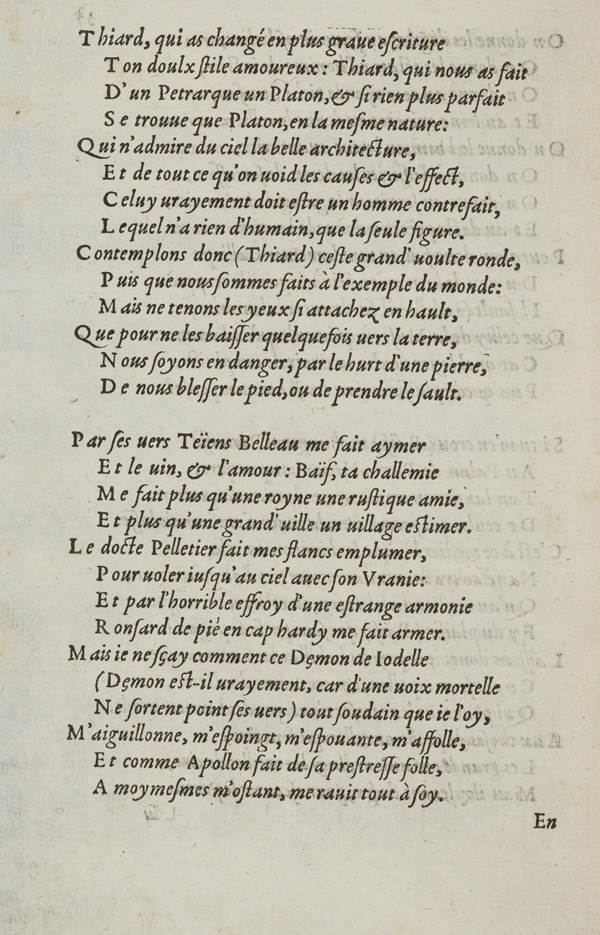 Thiard, qui as changé en plus graue eſcriture
Ton doulx ſtile amoureux: Thiard, qui nous as fait
D'un Petrarque un Platon, & ſi rien plus parfait
Se trouue que Platon, en la meſme nature:
Qui n'admire du ciel la belle architecture,
Et de tout ce qu'on uoid les cauſes & l'effect,
Celuy urayement doit eſtre un homme contrefait,
Lequel n'a rien d'humain, que la ſeule figure.
Contemplons donc (Thiard) ceſte grand' uoulte ronde,
Puis que nous ſommes faits à l'exemple du monde:
Mais ne tenons les yeux ſi attachez en hault,
Que pour ne les baiſſer quelquefois uers la terre,
Nous ſoyons en danger, par le hurt d'une pierre,
De nous bleſſer le pied, ou de prendre le ſault.
Par ſes uers Teïens Belleau me fait aymer
Et le uin, & l'amour: Baïf, ta challemie
Me fait plus qu'une royne une ruſtique amie,
Et plus qu'une grand' uille un uillage eſtimer.
Le docte Pelletier fait mes flancs emplumer,
Pour uoler iuſqu'au ciel auec ſon Vranie:
Et par l'horrible effroy d'une eſtrange armonie
Ronſard de pié en cap hardy me fait armer.
Mais ie ne ſçay comment ce Dęmon de Iodelle
(Dęmon eſt-il urayement, car d'une uoix mortelle
Ne ſortent point ſes uers) tout ſoudain que ie l'oy,
M'aiguillonne, m'eſpoingt, m'eſpouante, m'affolle,
Et comme Apollon fait de ſa preſtreſſe folle,
A moymeſmes m'oſtant, me rauit tout à ſoy.
En